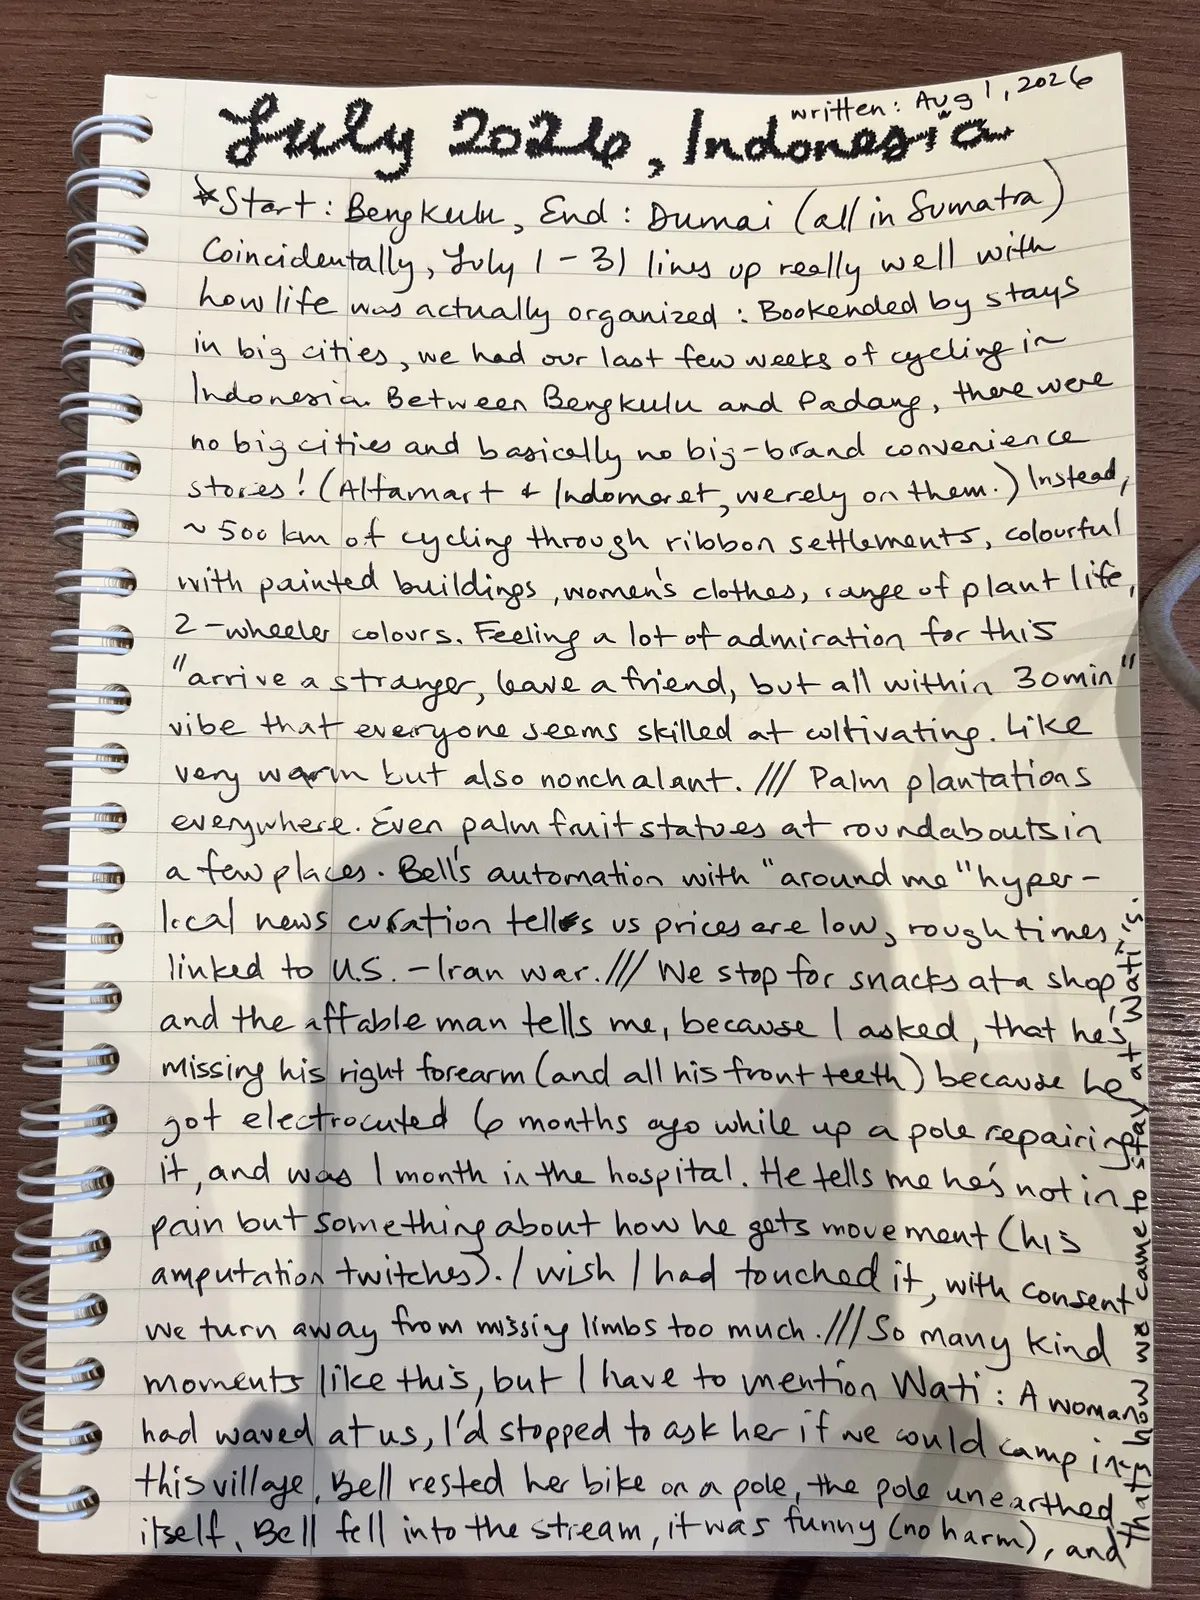 written: Aug 1, 2026
July 2026, Indonesia
*Start: Bengkulu, End: Dumai (all in Sumatra)
Coincidentally, July 1-31 lines up really well with
how life was actually organized: Bookended by stays
in big cities, we had our last few weeks of cycling in
Indonesia. Between Bengkulu and Padang, there were
no big cities and basically no big-brand convenience
stores! (Alfamart & Indomaret, we rely on them.) Instead,
~500 km of cycling through ribbon settlements, colourful
with painted buildings, women's clothes, range of plant life,
2-wheeler colours. Feeling a lot of admiration for this
"arrive a stranger, leave a friend, but all within 30min"
vibe that everyone seems skilled at cultivating. Like
very warm but also nonchalant. /// Palm plantations
everywhere. Even palm fruit statues at roundabouts in
a few places. Bell's automation with "around me" hyper-
local news curation tells us prices are low, rough times
linked to U.S.-Iran war. /// We stop for snacks at a shop
and the affable man tells me, because I asked, that he's
missing his right forearm (and all his front teeth) because he
got electrocuted 6 months ago while up a pole repairing
it, and was 1 month in the hospital. He tells me he's not in
pain but something about how he gets movement (his
amputation twitches). I wish I had touched it, with consent
we turn away from missing limbs too much. /// So many kind
moments like this, but I have to mention Wati: A woman
had waved at us, I'd stopped to ask her if we could camp in
this village, Bell rested her bike on a pole, the pole unearthed
itself, Bell fell into the stream, it was funny (no harm), and
that's how we came to stay at Wati's.